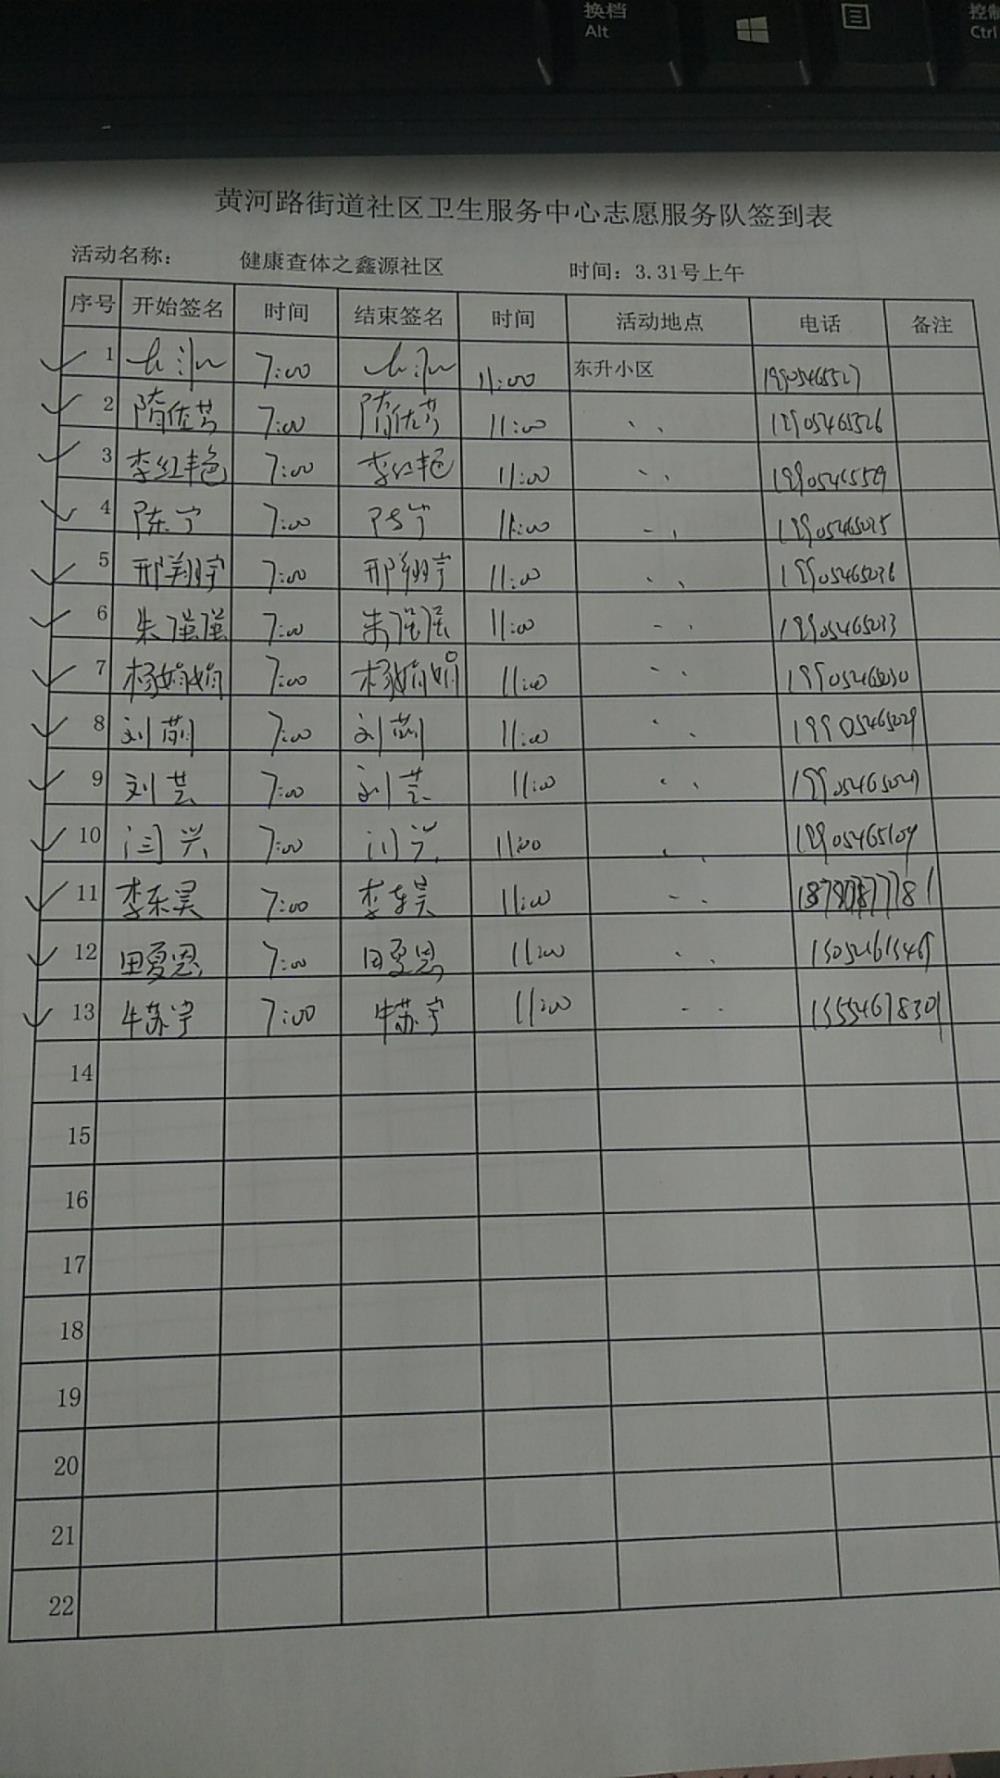 换档
Alt
控制
Ctrl
黄河路街道社区卫生服务中心志愿服务队签到表
活动名称： 健康查体之鑫源社区 时间：3.31号上午
序号 开始签名 时间 结束签名 时间 活动地点 电话 备注
1 7:00 11:00 东升小区 19905465527
2 隋佐芳 7:00 隋佐芳 11:00 、、 19905465526
3 李红艳 7:00 李红艳 11:00 、、 19905465529
4 陈宁 7:00 陈宁 11:00 、、 19905465025
5 邢翔宇 7:00 邢翔宇 11:00 、、 19905465036
6 朱强强 7:00 朱强强 11:00 、、 19905465033
7 杨娟娟 7:00 杨娟娟 11:00 、、 19905465030
8 刘莉 7:00 刘莉 11:00 、、 19905465029
9 刘芸 7:00 刘芸 11:00 、、
10 闫兴 7:00 闫兴 11:00 、、 19905465109
11 李东昊 7:00 李东昊 11:00 、、
12 田夏恩 7:00 田夏恩 11:00 、、
13 牛苏宇 7:00 牛苏宇 11:00 、、 15554678301
14
15
16
17
18
19
20
21
22